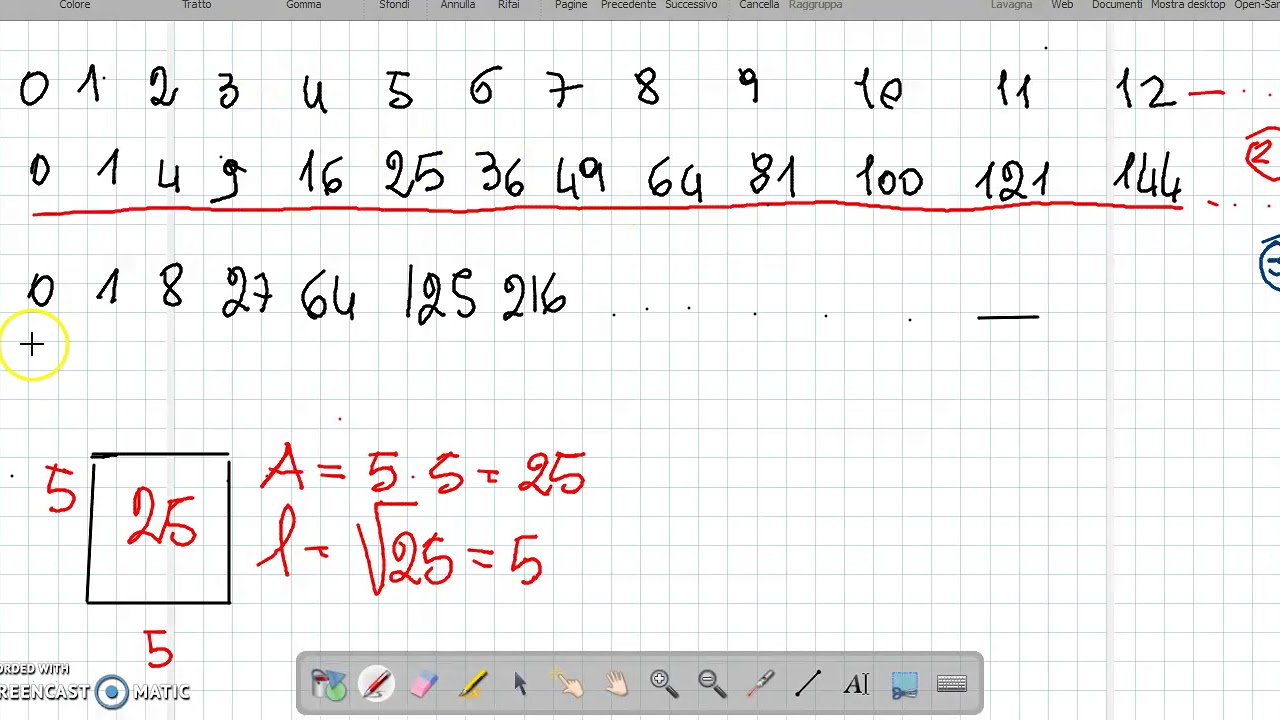 Colore Tratto Gomma Sfondi Annulla Rifai Pagine Precedente Successivo Cancella Raggruppa Lavagna Web Documenti Mostra desktop Open-San
0 1 2 3 4 5 6 7 8 9 10 11 12
0 1 4 9 16 25 36 49 64 81 100 121 144
2
0 1 8 27 64 125 216
3
5 25
A = 5 · 5 = 25
l = √25 = 5
5
ORDED WITH
REENCAST MATIC
AI